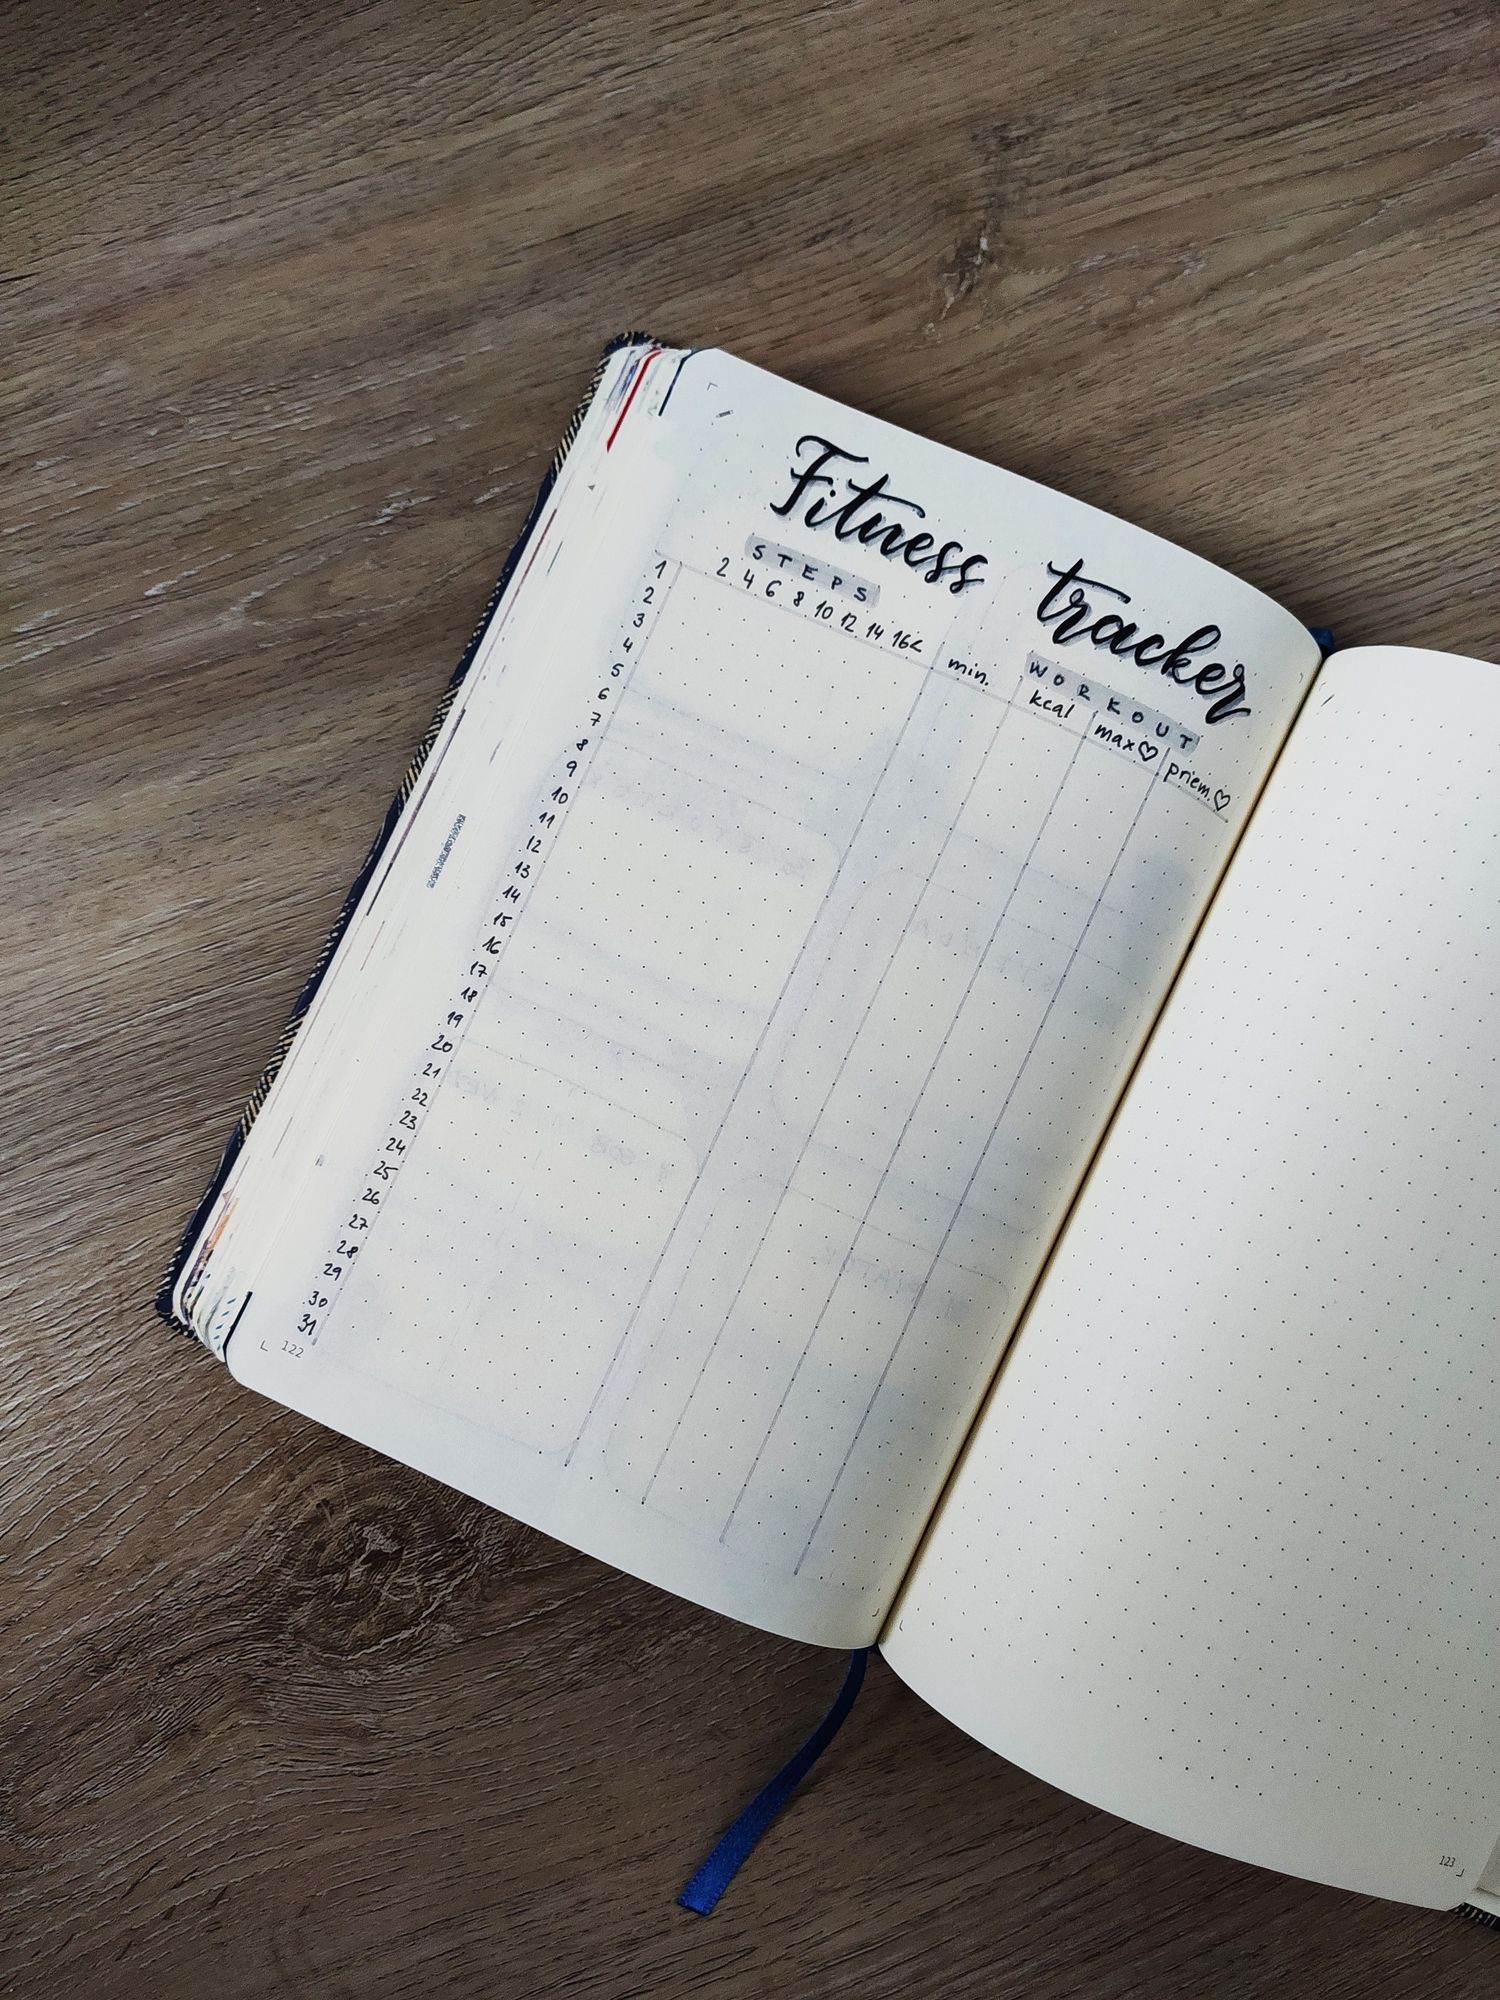 Fitness tracker
STEPS
2 4 6 8 10 12 14 16<
WORKOUT
min. kcal max♡ priem.♡
1
2
3
4
5
6
7
8
9
10
11
12
13
14
15
16
17
18
19
20
21
22
23
24
25
26
27
28
29
30
31
122
123